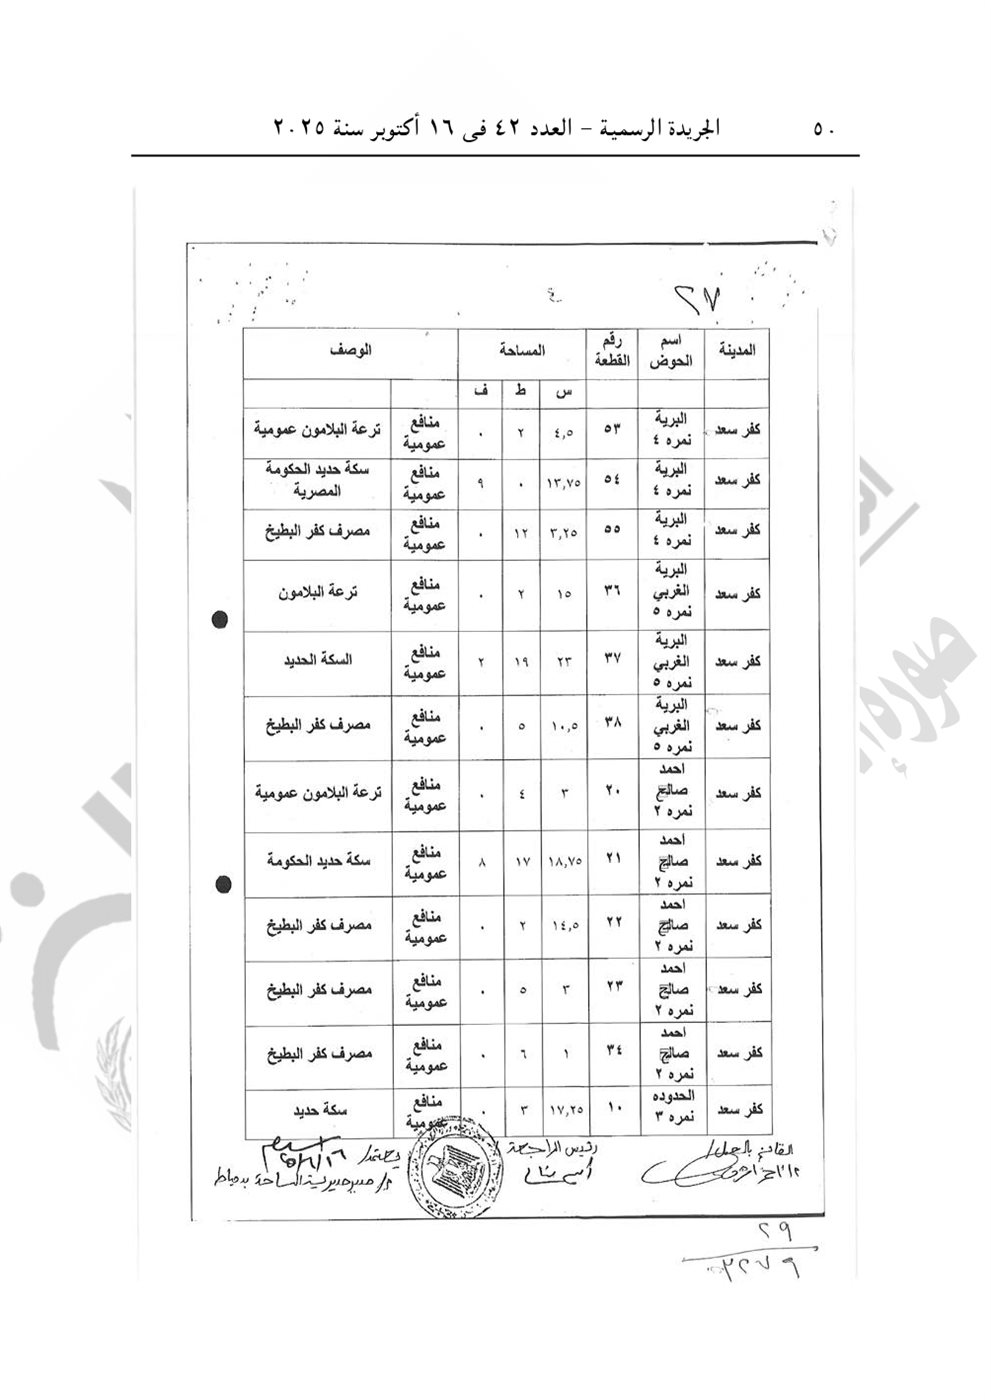 ٥٠ الجريدة الرسمية – العدد ٤٢ فى ١٦ أكتوبر سنة ٢٠٢٥
٢٧ ٤
المدينة اسم الحوض رقم القطعة المساحة الوصف
س ط ف
كفر سعد البرية نمره ٤ ٥٣ ٤,٥ ٢ ٠ منافع عمومية ترعة البلامون عمومية
كفر سعد البرية نمره ٤ ٥٤ ١٣,٧٥ ٠ ٩ منافع عمومية سكة حديد الحكومة المصرية
كفر سعد البرية نمره ٤ ٥٥ ٣,٢٥ ١٢ ٠ منافع عمومية مصرف كفر البطيخ
كفر سعد البرية الغربي نمره ٥ ٣٦ ١٥ ٢ ٠ منافع عمومية ترعة البلامون
كفر سعد البرية الغربي نمره ٥ ٣٧ ٢٣ ١٩ ٢ منافع عمومية السكة الحديد
كفر سعد البرية الغربي نمره ٥ ٣٨ ١٠,٥ ٥ ٠ منافع عمومية مصرف كفر البطيخ
كفر سعد احمد صالح نمره ٢ ٢٠ ٣ ٤ ٠ منافع عمومية ترعة البلامون عمومية
كفر سعد احمد صالح نمره ٢ ٢١ ١٨,٧٥ ١٧ ٨ منافع عمومية سكة حديد الحكومة
كفر سعد احمد صالح نمره ٢ ٢٢ ١٤,٥ ٢ ٠ منافع عمومية مصرف كفر البطيخ
كفر سعد احمد صالح نمره ٢ ٢٣ ٣ ٥ ٠ منافع عمومية مصرف كفر البطيخ
كفر سعد احمد صالح نمره ٢ ٣٤ ١ ٦ ٠ منافع عمومية مصرف كفر البطيخ
كفر سعد الحدوده نمره ٣ ١٠ ١٧,٢٥ ٣ ٠ منافع عمومية سكة حديد
القائم بالعمل/ رئيس المراجعة يعتمد/
م/ مدير مديرية المساحة بدمياط
٢٩
صورة